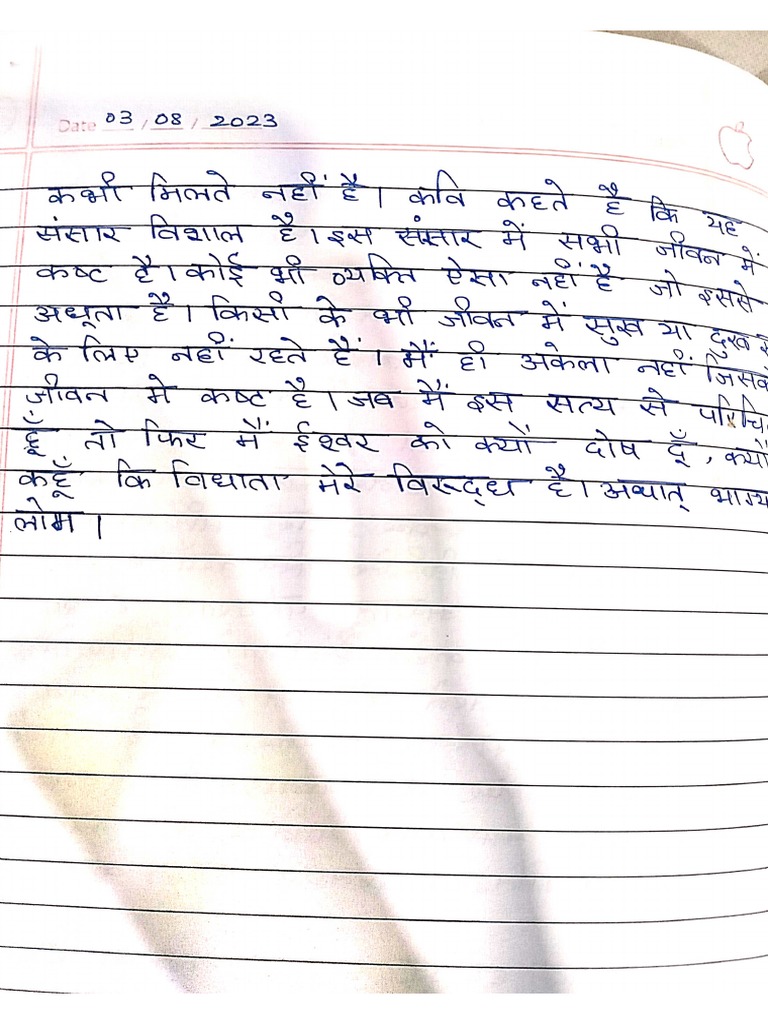 Date 03 / 08 / 2023
कभी मिलते नहीं है। कवि कहते है कि यह
संसार विशाल है। इस संसार में सभी जीवन में
कष्ट है। कोई भी व्यक्ति ऐसा नहीं है जो इससे
अछूता है। किसी के भी जीवन में सुख या दुख
के लिए नहीं रहते हैं। मैं ही अकेला नहीं
जीवन मे कष्ट है। जब मैं इस सत्य से
हूँ तो फिर मैं ईश्वर को क्यों दोष दूँ, क्यों
कहूँ कि विधाता मेरे विरूद्ध है। अर्थात् भाग्य
लोभ।